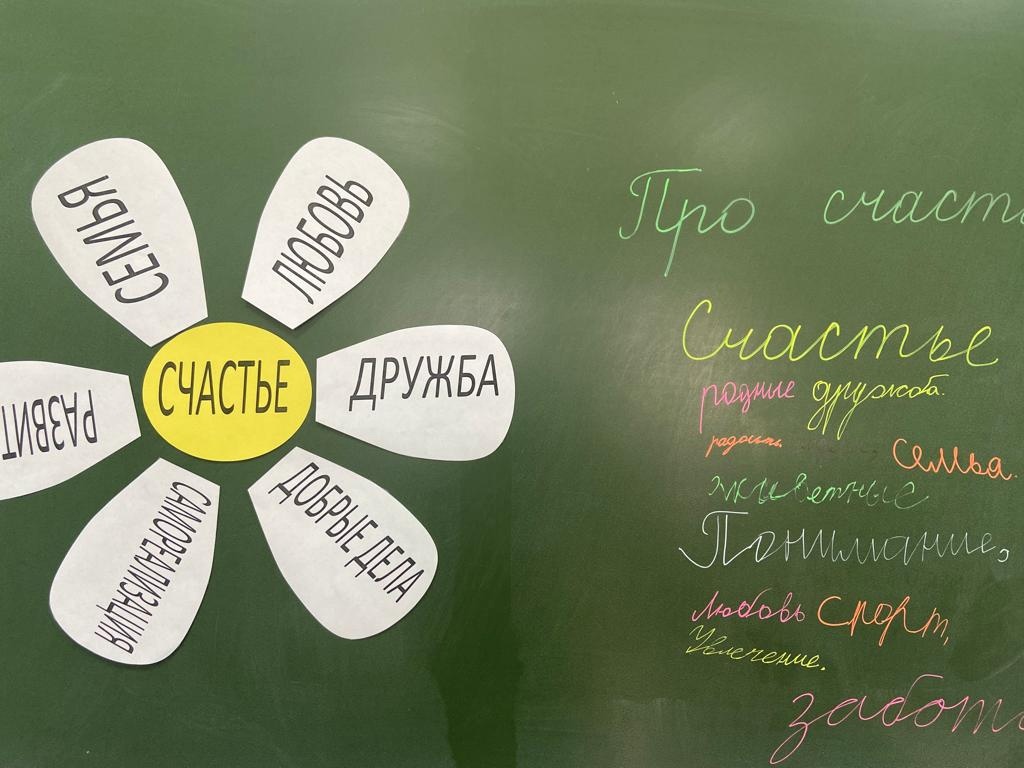 СЕМЬЯ
ЛЮБОВЬ
СЧАСТЬЕ
ДРУЖБА
РАЗВИТ
САМОРЕАЛИЗАЦИЯ
ДОБРЫЕ ДЕЛА
Про счасть
Счастье
родные дружба.
радость семья.
животные
Понимание,
любовь Спорт,
Увлечение.
забот